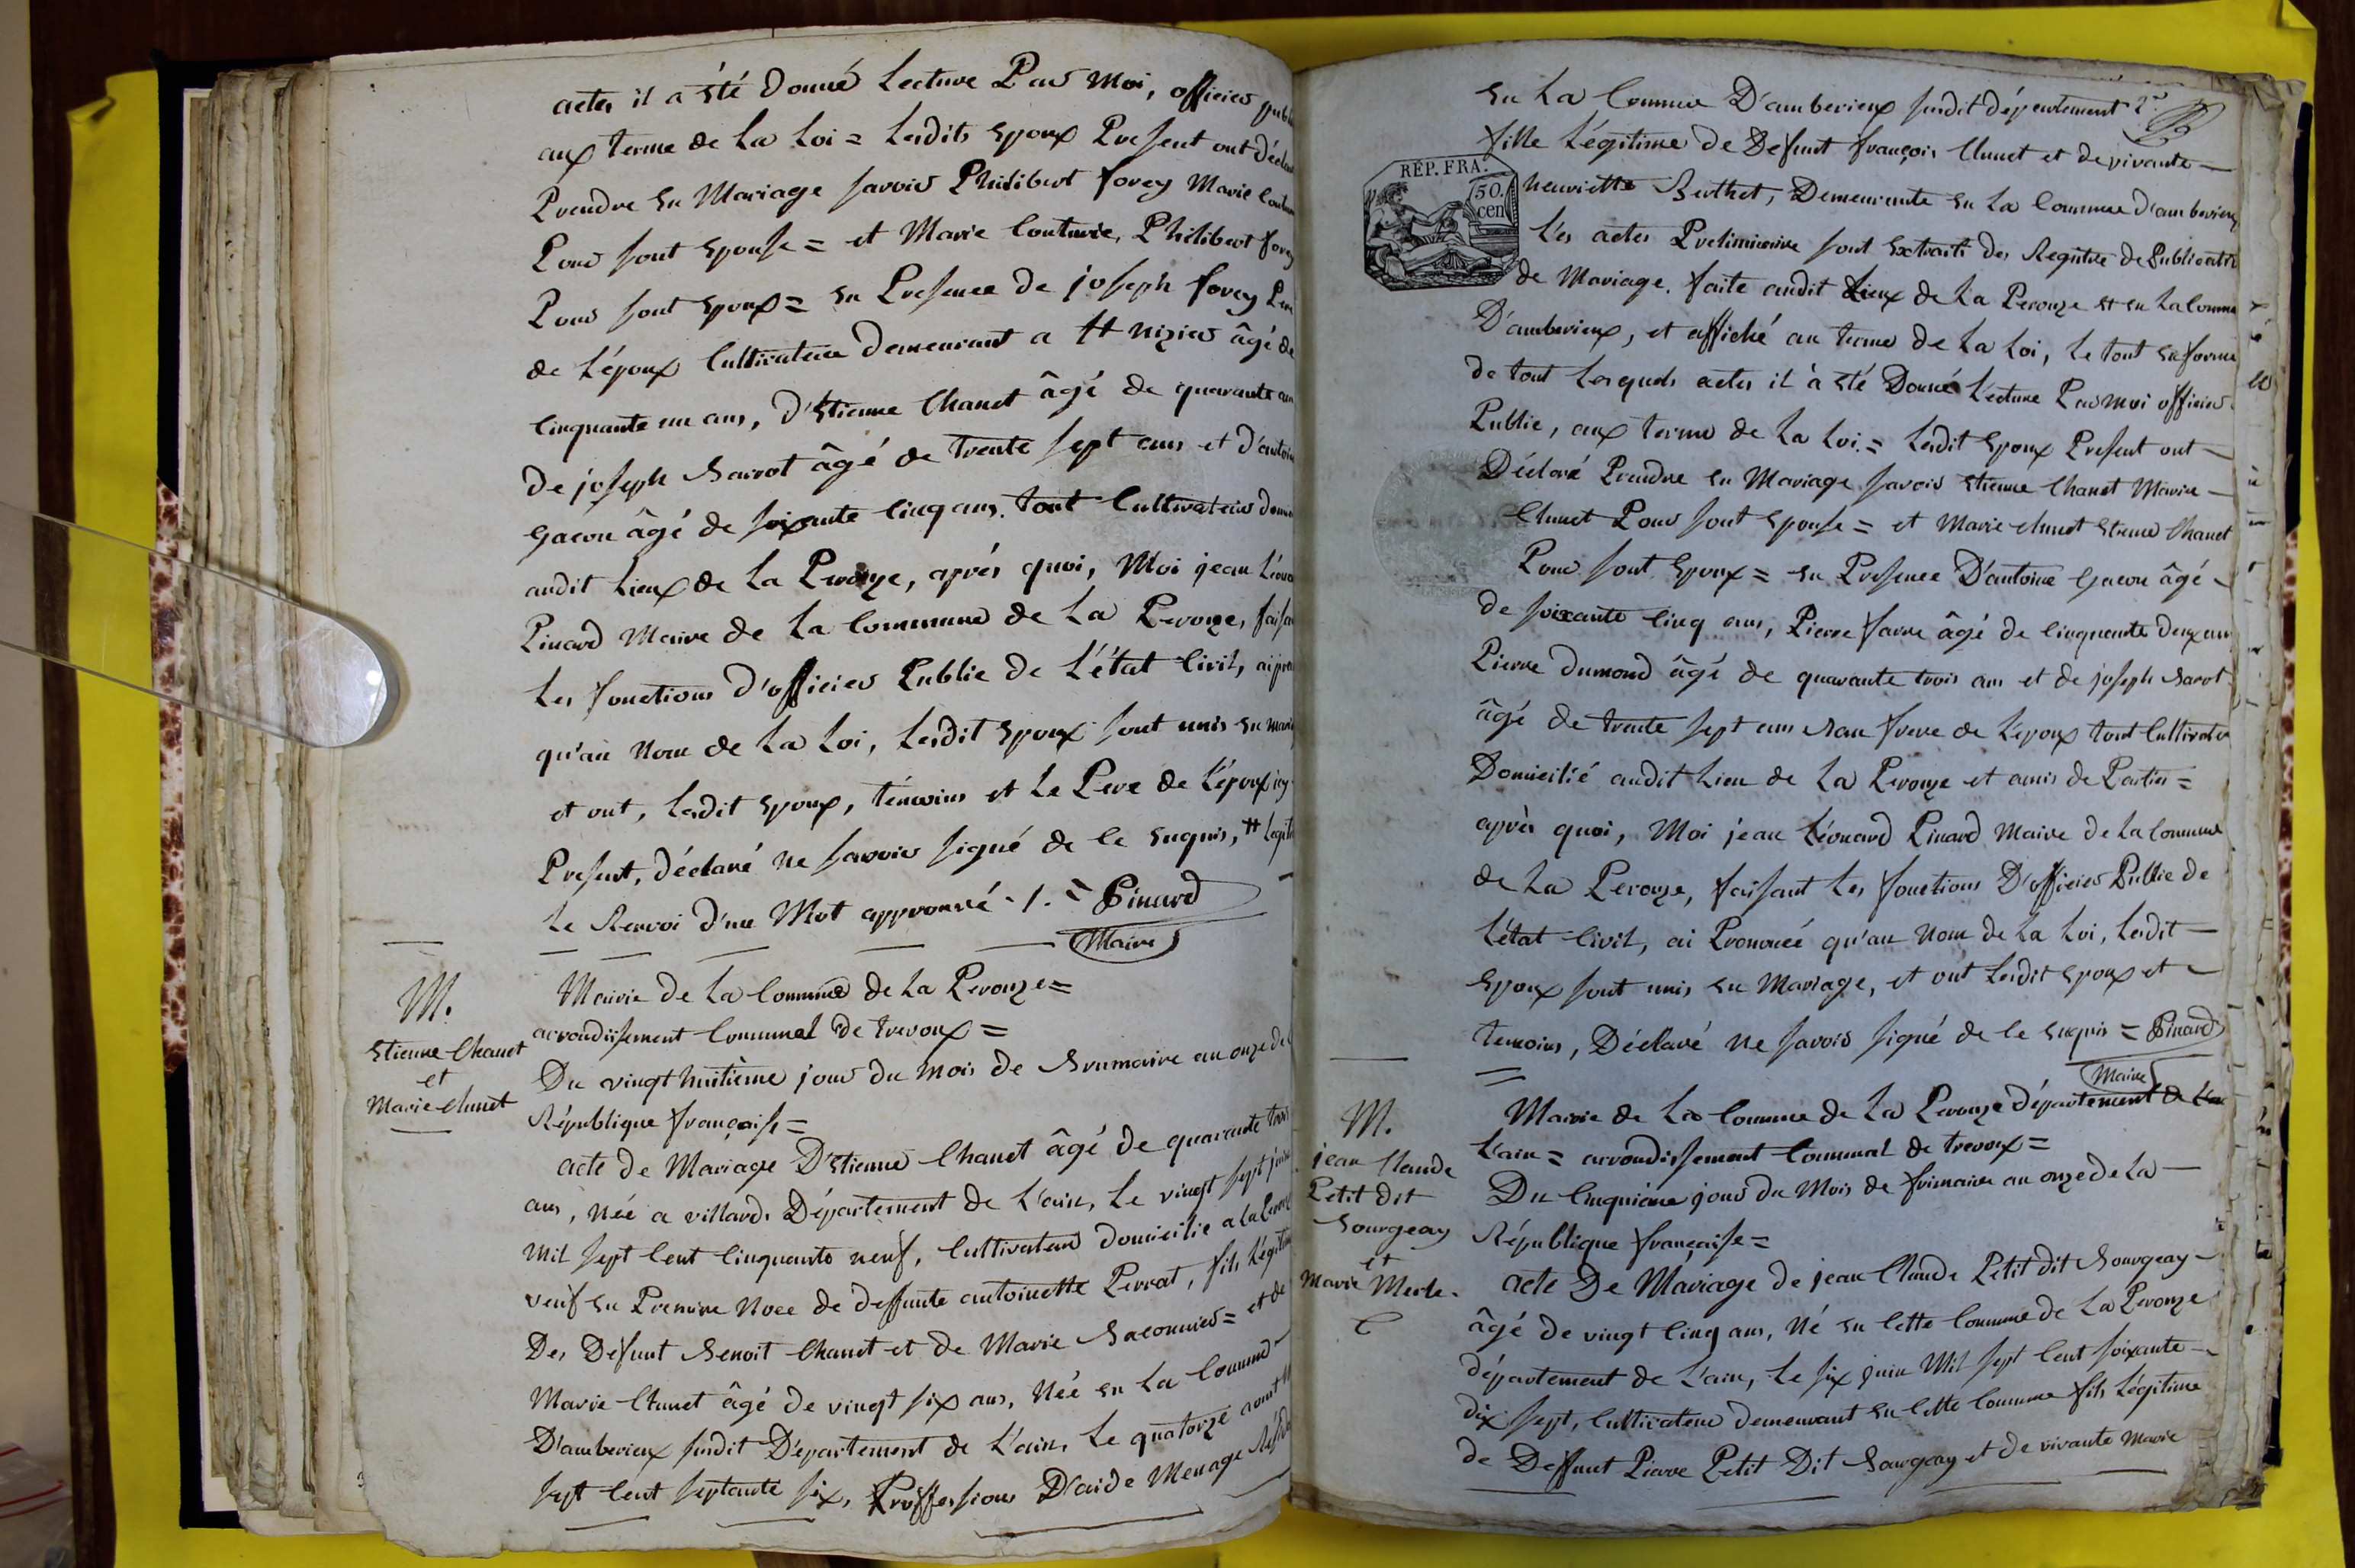 actes il a été donné Lecture Par Moi, officier publi
aux terme de La Loi = Lesdits Epoux Present ont déclar
Prendre En Mariage savoir Philibert forey Marie Coutu
Pour sont Epouse = et Marie Couturie, Philibert forey
Pour sont Epoux = En Presence de joseph forey Pere
de L'époux Cultivateur demeurant a St Nizier âgé de
Cinquante un ans, d'Etienne Chanet âgé de quarante
de joseph Barrot âgé de trente sept ans et d'antoin
Gacon âgé de soixante Cinq ans. tout Cultivateur deme
audit Lieux de La Perouze, aprés quoi, Moi jean Léona
Pinard Maire de La Commune de La Perouze, faisan
Les fonctions d'officier Public de L'état Civil, ai pro
qu'au Nom de La Loi, Lesdit Epoux sont unis En mari
et ont, Lesdit Epoux, témoins et Le Pere de L'époux icy
Present, déclaré ne savoir signé de Ce Enquis, # Legiti
Le Renvoi d'un Mot approuvé ./. = Pinard
Maire
M.
Etienne Chanet
et
Marie Chunet
Mairie de La Commune de La Perouze =
arrondissement Communal de trevoux =
Du vingt huitième jour du Mois de Brumaire an onze de l
République française =
acte de Mariage D'Etienne Chanet âgé de quarante trois
ans, Née a villards Département de L'ain, Le vingt sept
Mil sept Cent Cinquante neuf, Cultivateur domicilié a La Perouz
veuf En Premiere Noce de deffunte antoinette Perrat, fils Légitim
Des Défunt Benoit Chanet et de Marie Baconnier = et de
Marie Chunet âgé de vingt six ans, Née En La Commune
D'amberieux susdit Département de L'ain, Le quatorze aout M
sept Cent septante six, Proffession D'aide Menage
En La Commune D'amberieux susdit département
fille Légitime de Defunt françois Chunet et de vivante
RÉP. FRA.
50.
cen
henriette Berthet, Demeurante En La Commune d'amberieux
Les actes Preliminaire sont Extraits des Registre de Publicatio
de Mariage. faite audit Lieux de La Perouze et En La Commu
D'amberieux, et affiché au terme de La Loi, Le tout En forme
de tout Lesquels actes il à été Donné Lecture Par moi officier
Public, aux terme de La Loi. = Lesdit Epoux Present ont
Déclaré Prendre En Mariage savoir Etienne Chanet Marie
Chunet Pour sont Epouse = et Marie Chunet Etienne Chanet
Pour sont Epoux = En Presence D'antoine Gacon âgé
de soixante Cinq ans, Pierre favre âgé de Cinquante deux ans
Pierre dumond âgé de quarante trois ans et de joseph Barot
âgé de trente sept ans Beau frere de L'epoux tout Cultivateu
Domicilié audit Lieu de La Perouze et amis de Parties =
après quoi, Moi jean Léonard Pinard Maire de La Commune
de La Perouze, faisant Les fonctions D'officier Public de
L'état Civil, ai Prononcé qu'au Nom de La Loi, Lesdit
Epoux sont unis En Mariage, et ont Lesdit Epoux et
temoins, Déclaré Ne savoir signé de Ce Enquis = Pinard
Maire
M.
jean Claude
Petit dit
Bourgeay
et
Marie Merle.
Mairie de La Commune de La Perouze département de
L'ain = arrondissement Communal de trevoux =
Du Cinquième jour du Mois de frimaire an onze de La
République française =
acte De Mariage de jean Claude Petit dit Bourgeay
âgé de vingt Cinq ans, Né En Cette Commune de La Perouze
département de L'ain, Le six juin Mil sept Cent soixante
dix sept, Cultivateur demeurant En Cette Commune fils Légitime
de Deffunt Pierre Petit Dit Bourgeay et de vivante Marie